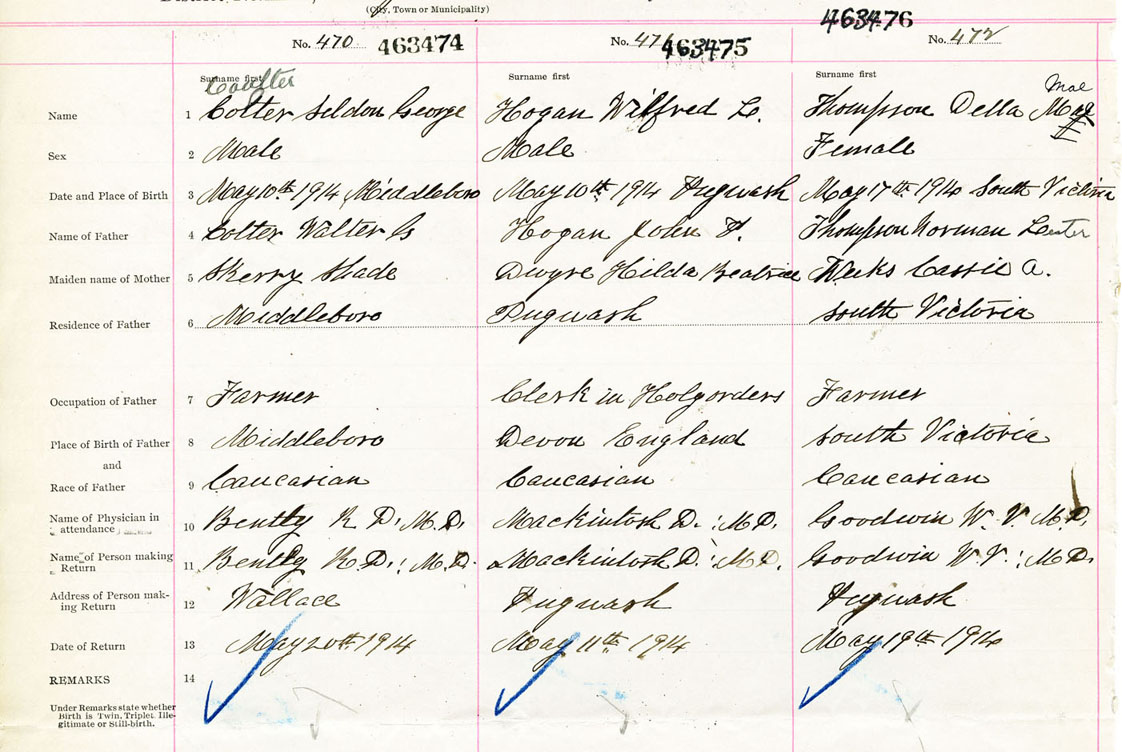 (City, Town or Municipality)
No. 470 463474 No. 471 463475 463476 No. 472
Surname first Surname first Surname first
Coulter Mae
Name 1 Colter Seldon George Hogan Wilfred L. Thompson Della Mae
Sex 2 Male Male Female
Date and Place of Birth 3 May 10th 1914 Middleboro May 10th 1914 Pugwash May 17th 1914 South Victoria
Name of Father 4 Colter Walter G Hogan John Thompson Norman Lester
Maiden name of Mother 5 Skerry Shade Dwyre Hilda Beatrice Weeks Cassie A.
Residence of Father 6 Middleboro Pugwash South Victoria
Occupation of Father 7 Farmer Clerk in Holyorders Farmer
Place of Birth of Father 8 Middleboro Devon England South Victoria
and
Race of Father 9 Caucasian Caucasian Caucasian
Name of Physician in attendance 10 Bently R D. M.D. Mackintosh D. : M.D. Goodwin W. V M.D.
Name of Person making Return 11 Bently R.D. : M.D. Mackintosh D. : M.D. Goodwin W. V. : M.D.
Address of Person making Return 12 Wallace Pugwash Pugwash
Date of Return 13 May 20th 1914 May 11th 1914 May 19th 1914
REMARKS 14
Under Remarks state whether
Birth is Twin, Triplet, Ille-
gitimate or Still-birth.